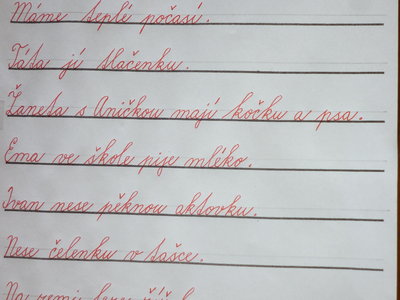 Máme teplé počasí.
Táta jí tlačenku.
Žaneta s Aničkou mají kočku a psa.
Ema ve škole pije mléko.
Ivan nese pěknou aktovku.
Nese čelenku v tašce.
Na zemi